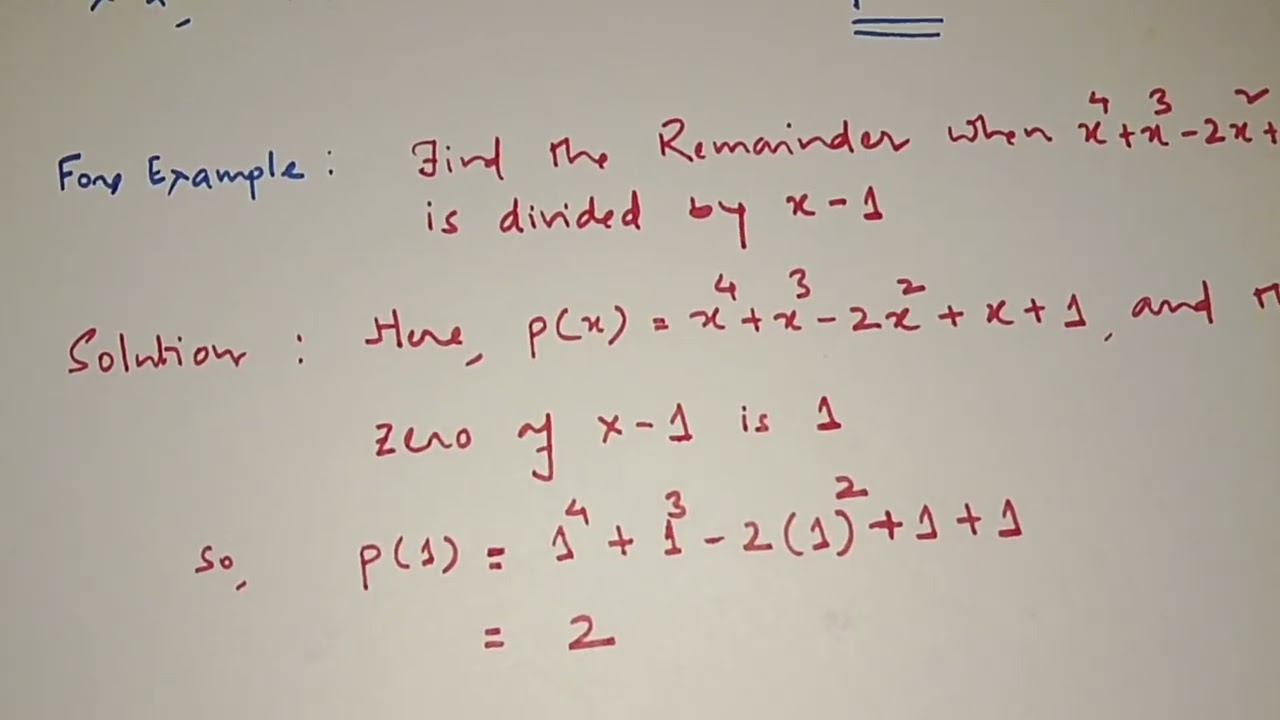 For Example : Find the Remainder when x⁴+x³-2x²+
is divided by x-1
Solution : Here, p(x) = x⁴+x³-2x²+x+1, and
zero of x-1 is 1
So, p(1) = 1⁴+1³-2(1)²+1+1
= 2